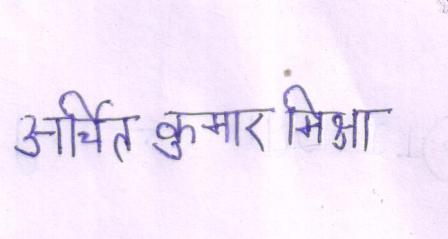 अर्चित कुमार मिश्रा